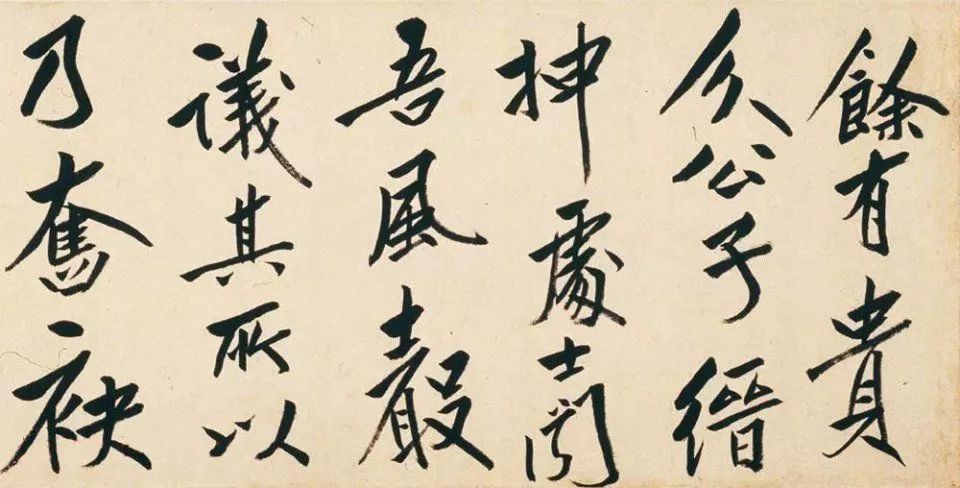 餘有貴
介公子縉
抻處士聞
吾風聲
議其所以
乃奮袂